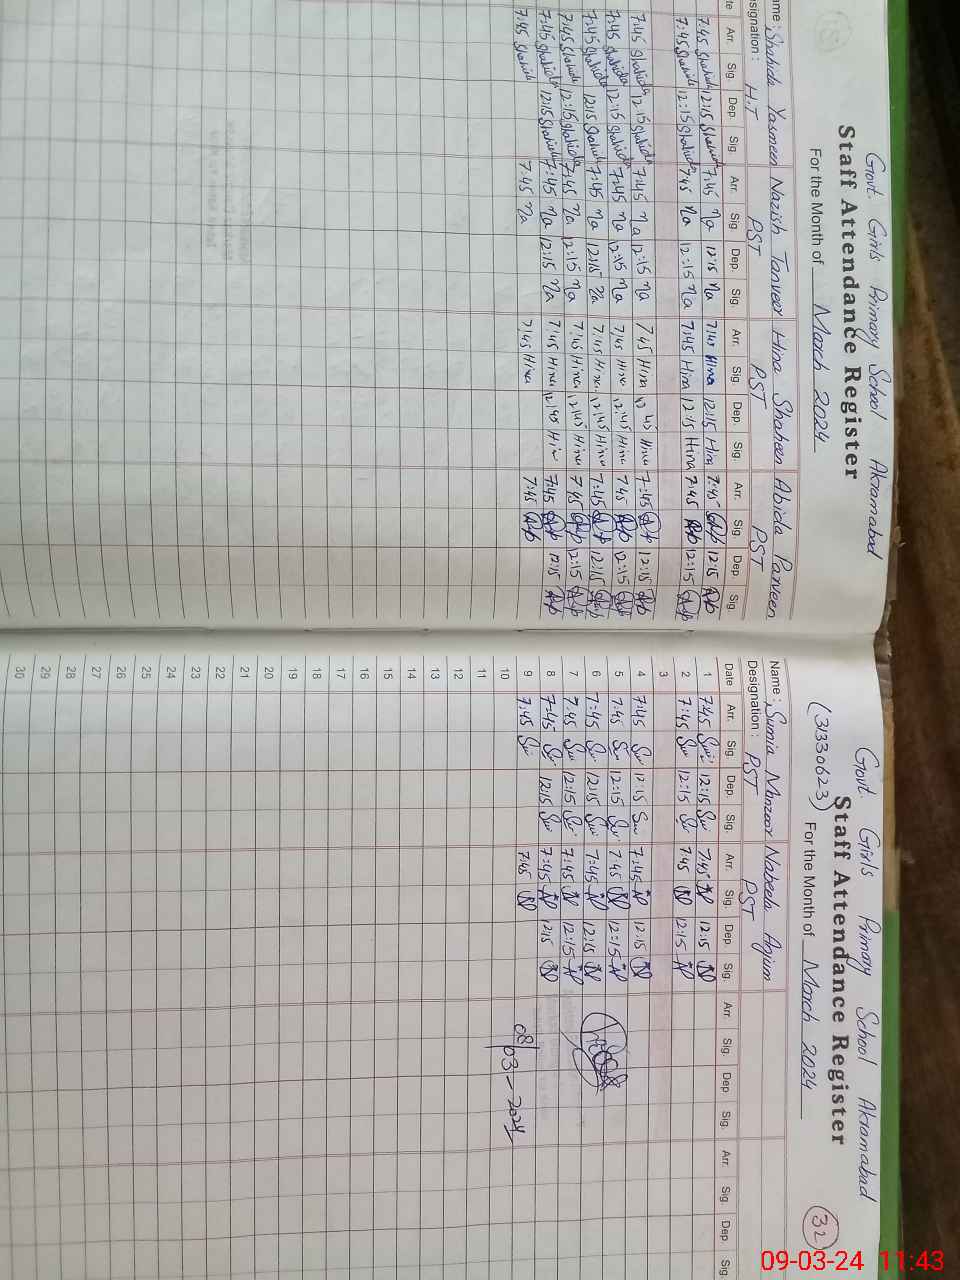 Govt. Girls Primary School Akramabad
Staff Attendance Register
For the Month of March 2024
Name: Shahida Yasmeen Nazish Tanveer Hina Shaheen Abida Parveen
Designation: H.T PST PST PST
Arr. Sig. Dep. Sig. Arr. Sig. Dep. Sig. Arr. Sig. Dep. Sig. Arr. Sig. Dep. Sig.
7:45 Shahida 12:15 Shahida 7:45 Na 12:15 Na 7:45 Hina 12:15 Hina 7:45 Ab 12:15 Ab
7:45 Shahida 12:15 Shahida 7:45 Na 12:15 Na 7:45 Hina 12:15 Hina 7:45 Ab 12:15 Ab
7:45 Shahida 12:15 Shahida 7:45 Na 12:15 Na 7:45 Hina 12:45 Hina 7:45 Ab 12:15 Ab
7:45 Shahida 12:15 Shahida 7:45 Na 12:15 Na 7:45 Hina 12:45 Hina 7:45 Ab 12:15 Ab
7:45 Shahida 12:15 Shahida 7:45 Na 12:15 Na 7:45 Hina 12:45 Hina 7:45 Ab 12:15 Ab
7:45 Shahida 12:15 Shahida 7:45 Na 12:15 Na 7:45 Hina 12:45 Hina 7:45 Ab 12:15 Ab
7:45 Shahida 12:15 Shahida 7:45 Na 12:15 Na 7:45 Hina 12:45 Hina 7:45 Ab 12:15 Ab
7:45 Shahida 7:45 Na 7:45 Hina 7:45 Ab
Govt. Girls Primary School Akramabad
(31330623) Staff Attendance Register 32
For the Month of March 2024
Name: Sumia Manzoor Nabeela Anjum
Designation: PST PST
Date Arr. Sig. Dep. Sig. Arr. Sig. Dep. Sig. Arr. Sig. Dep Sig. Arr. Sig. Dep Sig.
1 7:45 Su 12:15 Su 7:45 N 12:15 N
2 7:45 Su 12:15 Su 7:45 N 12:15 N
3
4 7:45 Su 12:15 Su 7:45 N 12:15 N
5 7:45 Su 12:15 Su 7:45 N 12:15 N
6 7:45 Su 12:15 Su 7:45 N 12:15 N
7 7:45 Su 12:15 Su 7:45 N 12:15 N
8 7:45 Su 12:15 Su 7:45 N 12:15 N
9 7:45 Su 7:45 N 08/03-2024
10
11
12
13
14
15
16
17
18
19
20
21
22
23
24
25
26
27
28
29
30
09-03-24 11:43